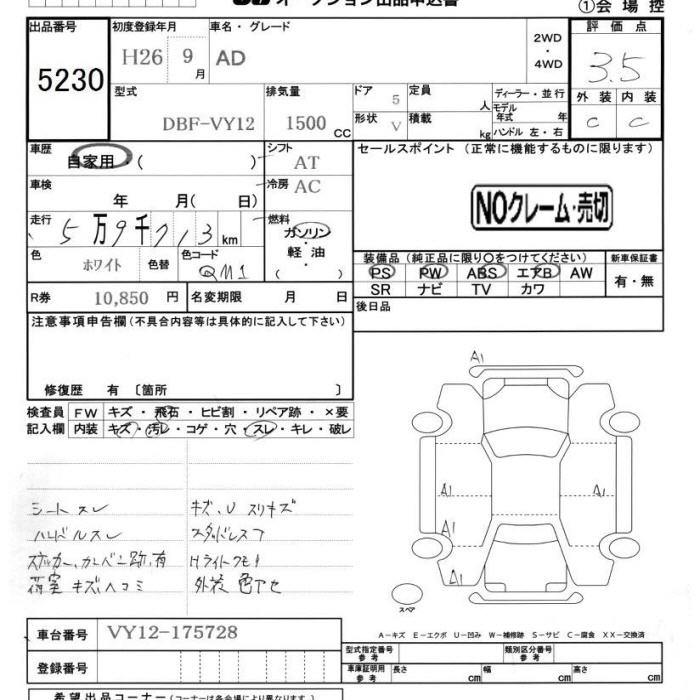 オークション出品申込書
①会場控
出品番号
5230
初度登録年月 H26 9月
車名・グレード AD
2WD・4WD
評価点 3.5
外装 C 内装 C
型式 DBF-VY12
排気量 1500 CC
ドア 5
形状 V
定員 人
積載 kg
ディーラー・並行
モデル年式 年
ハンドル 左・右
車歴 自家用・( )
シフト AT
セールスポイント (正常に機能するものに限ります)
車検 年 月( 日)
冷房 AC
NOクレーム・売切
走行 5万9千713km
燃料 ガソリン・軽油 ( )
色 ホワイト 色替 色コード QM1
装備品 (純正品に限り○をつけてください) 新車保証書
PS PW ABS エアB AW 有・無
SR ナビ TV カワ
R券 10,850円 名変期限 月 日
後日品
注意事項申告欄(不具合内容等は具体的に記入して下さい)
修復歴 有 〔箇所 〕
検査員 FW キズ・飛石・ヒビ割・リペア跡・×要
記入欄 内装 キズ・汚レ・コゲ・穴・スレ・キレ・破レ
シートスレ キズ、U スリキズ
ハンドルスレ スタッドレス7
ステッカー、カンバン跡、有 Hライトクモリ
荷室キズ、ヘコミ 外板色アセ
A1
A1 A1
A1
A1
スペア
A－キズ E－エクボ U－凹み W－補修跡 S－サビ C－腐食 XX－交換済
車台番号 VY12-175728
型式指定番号 参考 類別区分番号 参考
登録番号
車庫証明用 参考 長さ cm 幅 cm 高さ cm
希望出品コーナー(コーナーは各会場により異なります)